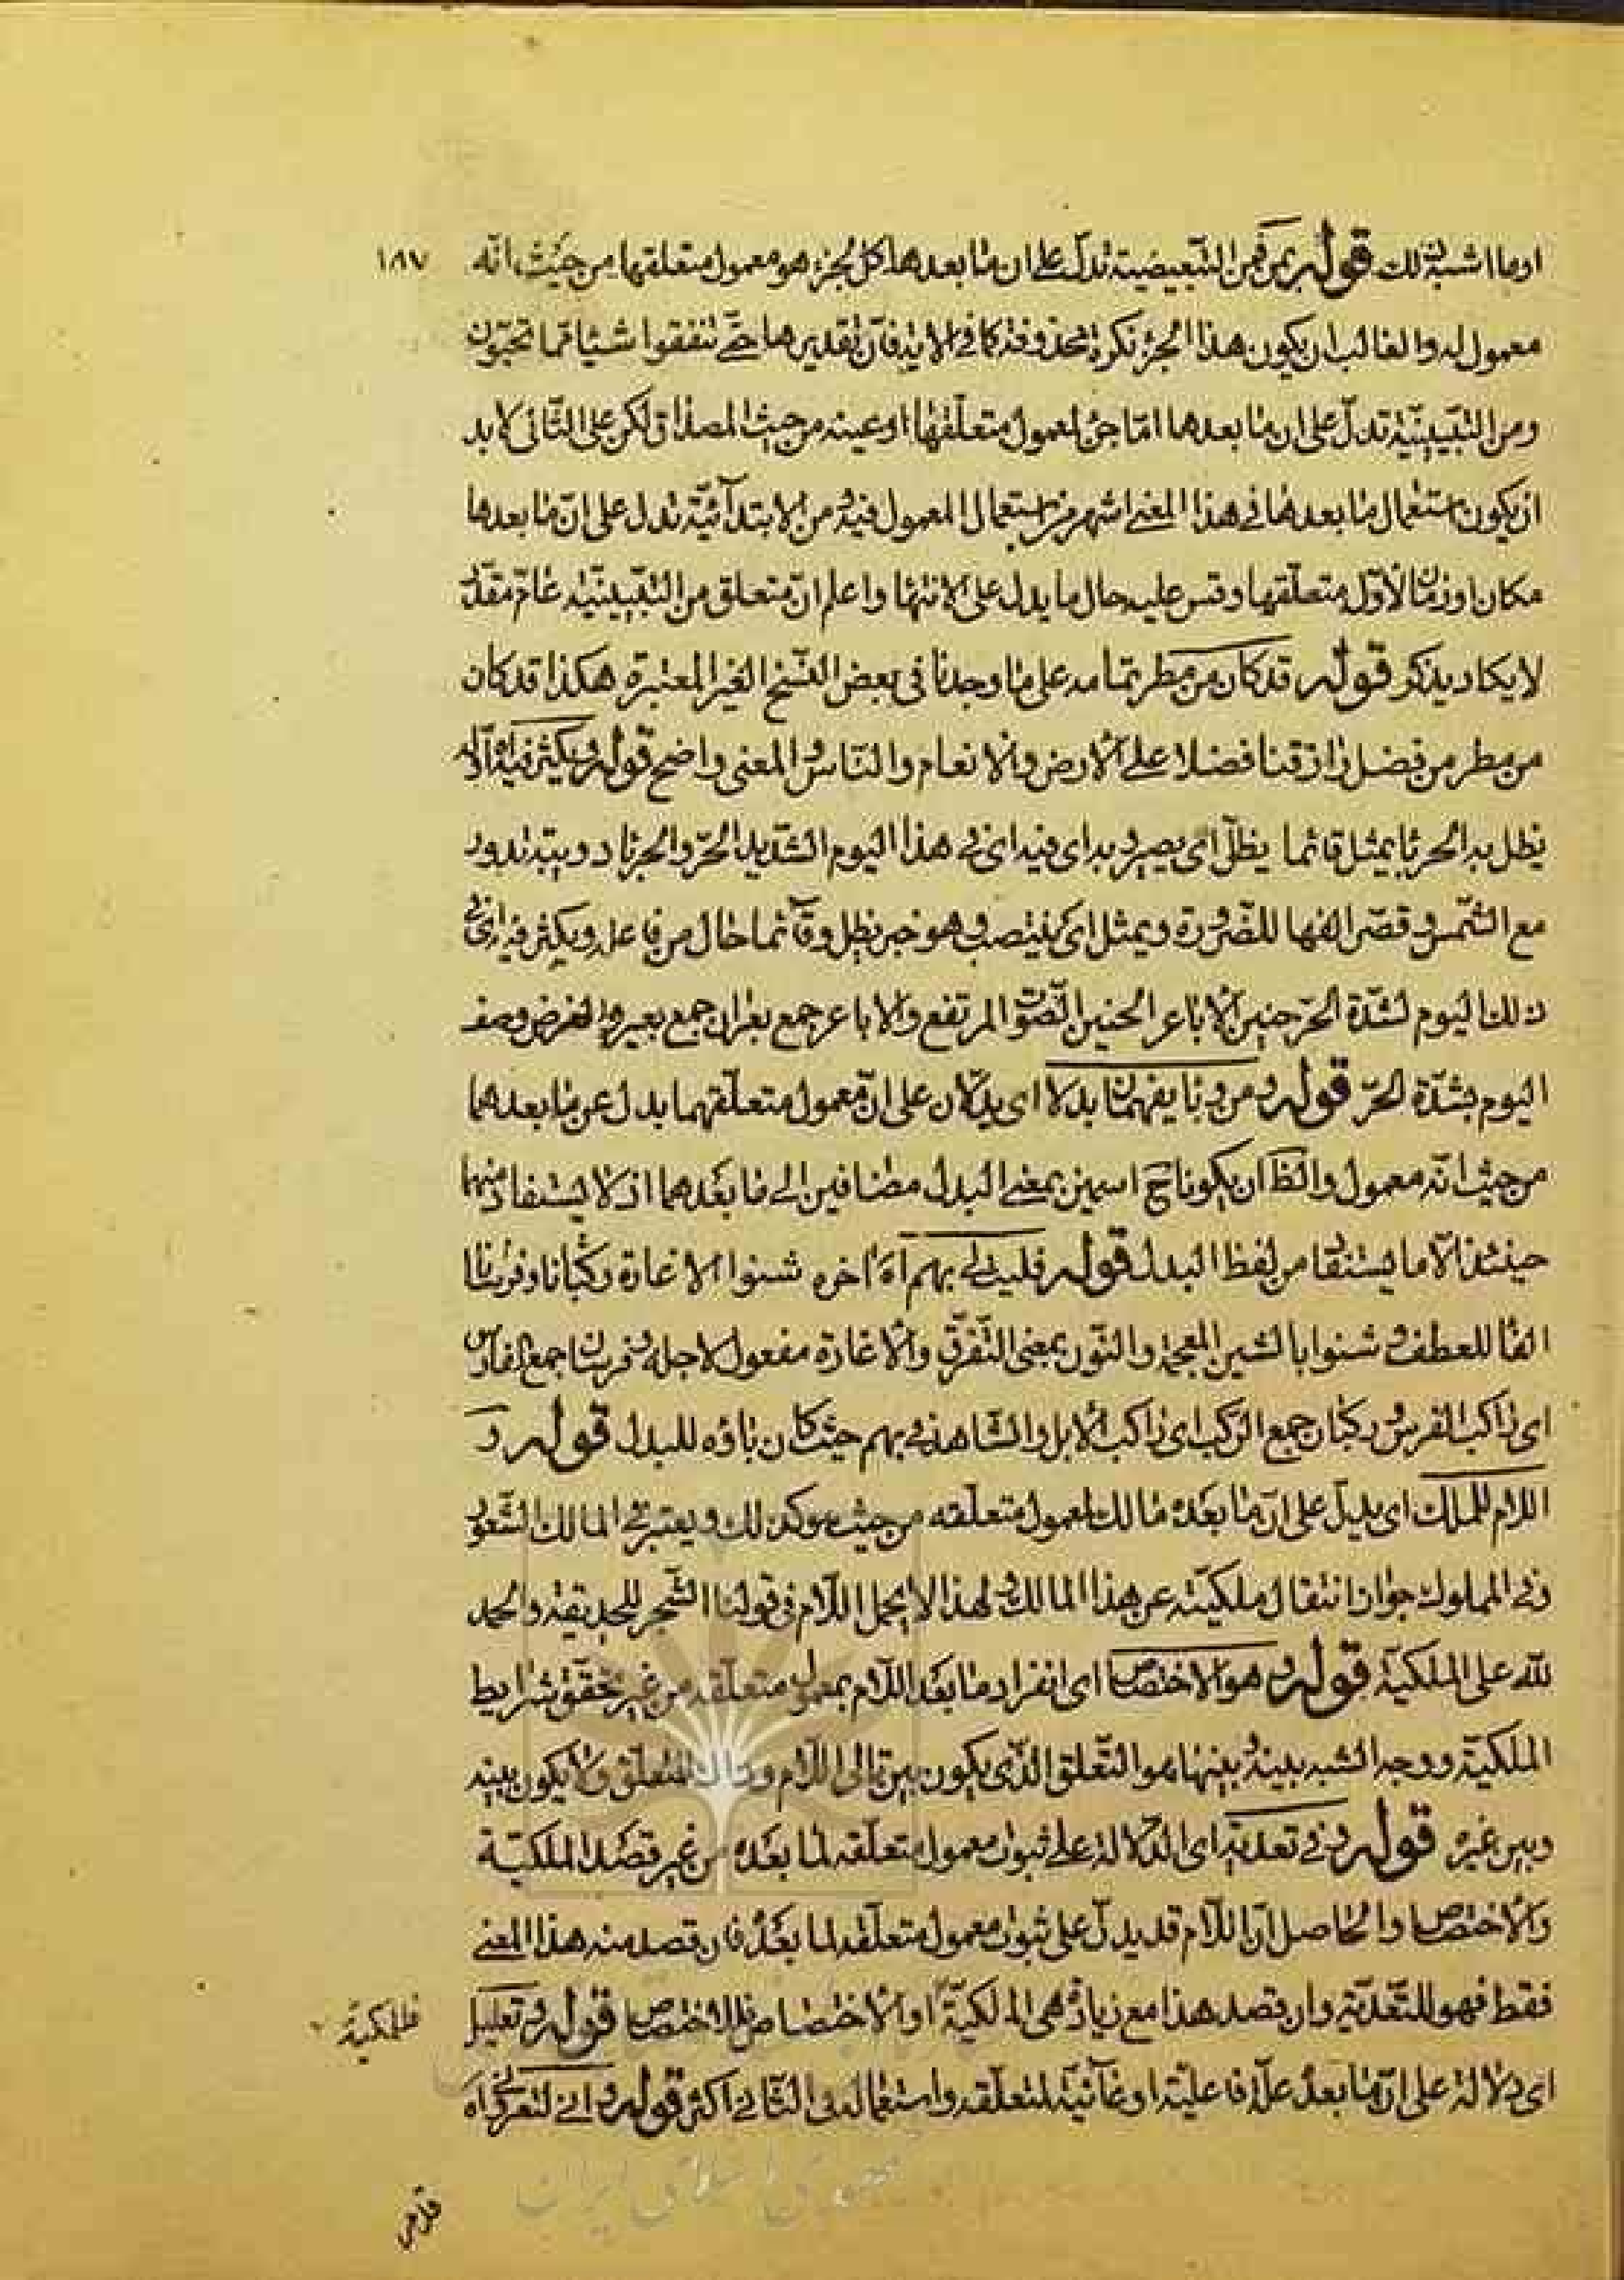 او ما اشبه ذلك قوله بمن فمن التبعيضية تدل على ان ما بعدها كل لجزء هو معمول متعلقها من حيث انه ١٨٧
معمول له والغالب ان يكون هذا الجزء نكرة محذوفة كما في الاية فان تقديرها حتى تنفقوا شيئا مما تحبون
ومن التبيينية تدل على ان ما بعدها اما جزء لمعمول متعلقها او عينه من حيث المصداق لكن على الثاني لا بد
ان يكون استعمال ما بعدها في هذا المعنى اشهر من استعمال المعمول فيه ومن الابتدائية تدل على ان ما بعدها
مكان او زمان لاول متعلقها وقس عليه حال ما يدل على الانتهاء واعلم ان متعلق من التبيينية عام مقدر
لا يكاد يذكر قوله قد كان من مطر تمامه على ما وجدنا في بعض النسخ الغير المعتبرة هكذا قد كان
من مطر من فضل رازقنا فضلا على الارض والانعام والناس والمعنى واضح قوله ويكثر فيه آه
يظل به الحرباء يمثل قائما يظل اي يصير وبه اي فيه اي في هذا اليوم الشديد الحر والحرباء دويبة تدور
مع الشمس وقصر الفها للضرورة ويمثل اي ينتصب وهو خبر يظل وقائما حال من فاعله ويكثر فيه اي في
ذلك اليوم لشدة الحر حنين الاباعر الحنين الصوت المرتفع والاباعر جمع بعران جمع بعير والغرض وصف
اليوم بشدة الحر قوله ومن وبا يفهمان بدلا اي يدلان على ان معمول متعلقهما بدل عن ما بعدهما
من حيث انه معمول والظ ان يكونا ح اسمين بمعنى البدل مضافين الى ما بعدهما اذ لا يستفاد منهما
حينئذ الا ما يستفاد من لفظ البدل قوله فليت لي بهم آه اخره شنوا الاغارة ركبانا وفرسانا
الفاء للعطف وشنوا بالشين المعجمة والنون بمعنى التفرق والاغارة مفعول لاجله وفرسان جمع الفارس
اي راكب الفرس وركبان جمع الركب اي راكب الابل والشاهد في بهم حيث كان باؤه للبدل قوله و
اللام للملك اي يدل على ان ما بعده مالك لمعمول متعلقه من حيث هو كذلك ويعتبر في المالك الشعور
وفي المملوك جواز انتقال ملكيته عن هذا المالك ولهذا لا يحمل اللام في قولنا الشجر للحديقة والحمد
لله على الملكية قوله وهو الاختصاص اي انفراد ما بعد اللام بمعمول متعلقه من غير تحقق شرايط
الملكية ووجه الشبه بينه وبينها هو التعلق الذي يكون بين تالى اللام و المتعلق ولا يكون بينه
وبين غيره قوله وفي تعدية اي الدلالة على ثبوت معمول متعلقه لما بعده من غير قصد الملكية
والاختصاص والحاصل ان اللام قد يدل على ثبوت معمول متعلقه لما بعده فان قصد منه هذا المعنى
فقط فهو للتعدية وان قصد هذا مع زيادة هي المالكية او الاختصاص فللاختصاص قوله وتعليل فللملكية
اي دلالة على ان ما بعده علة فاعلية او غائية لمتعلقه واستعماله في الثاني اكثر قوله واني لتعروني آه